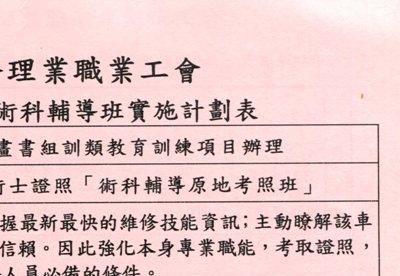 理業職業工會
術科輔導班實施計劃表
畫書組訓類教育訓練項目辦理
士證照「術科輔導原地考照班」
握最新最快的維修技能資訊；主動瞭解該車
信賴。因此強化本身專業職能，考取證照，
人員必備的條件。